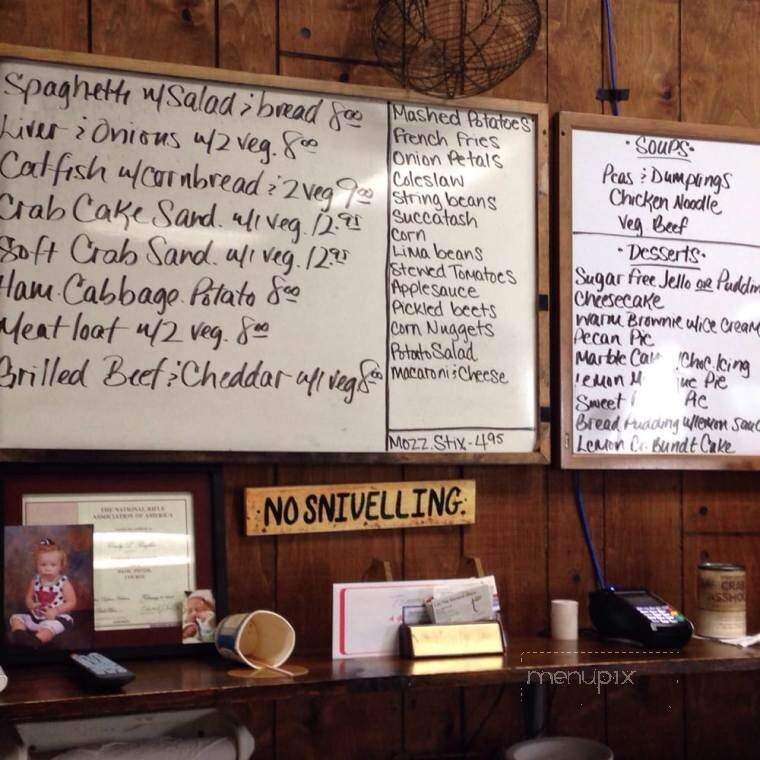 Spaghetti w/Salad & bread 8.00
Liver & Onions w/2 veg. 8.00
Catfish w/cornbread & 2 veg 9.00
Crab Cake Sand. w/1 veg. 12.95
Soft Crab Sand. w/1 veg. 12.95
Ham. Cabbage. Potato 8.00
Meatloaf w/2 veg. 8.00
Grilled Beef & Cheddar w/1 veg 8.00
Mashed Potatoes
French Fries
Onion Petals
Coleslaw
String beans
Succatash
Corn
Lima beans
Stewed Tomatoes
Applesauce
Pickled beets
Corn Nuggets
Potato Salad
Macaroni & Cheese
Mozz. Stix - 4.95
• Soups •
Peas & Dumplings
Chicken Noodle
Veg Beef
• Desserts •
Sugar Free Jello or Puddin
Cheesecake
Warm Brownie w/ice Cream
Pecan Pie
Marble Cake Choc. Icing
Lemon Pie
Sweet Pie
Bread Pudding w/lemon Sauc
Lemon Cr. Bundt Cake
NO SNIVELLING.
THE NATIONAL RIFLE
ASSOCIATION OF AMERICA
BASIC PISTOL
COURSE
CRAB
menupix